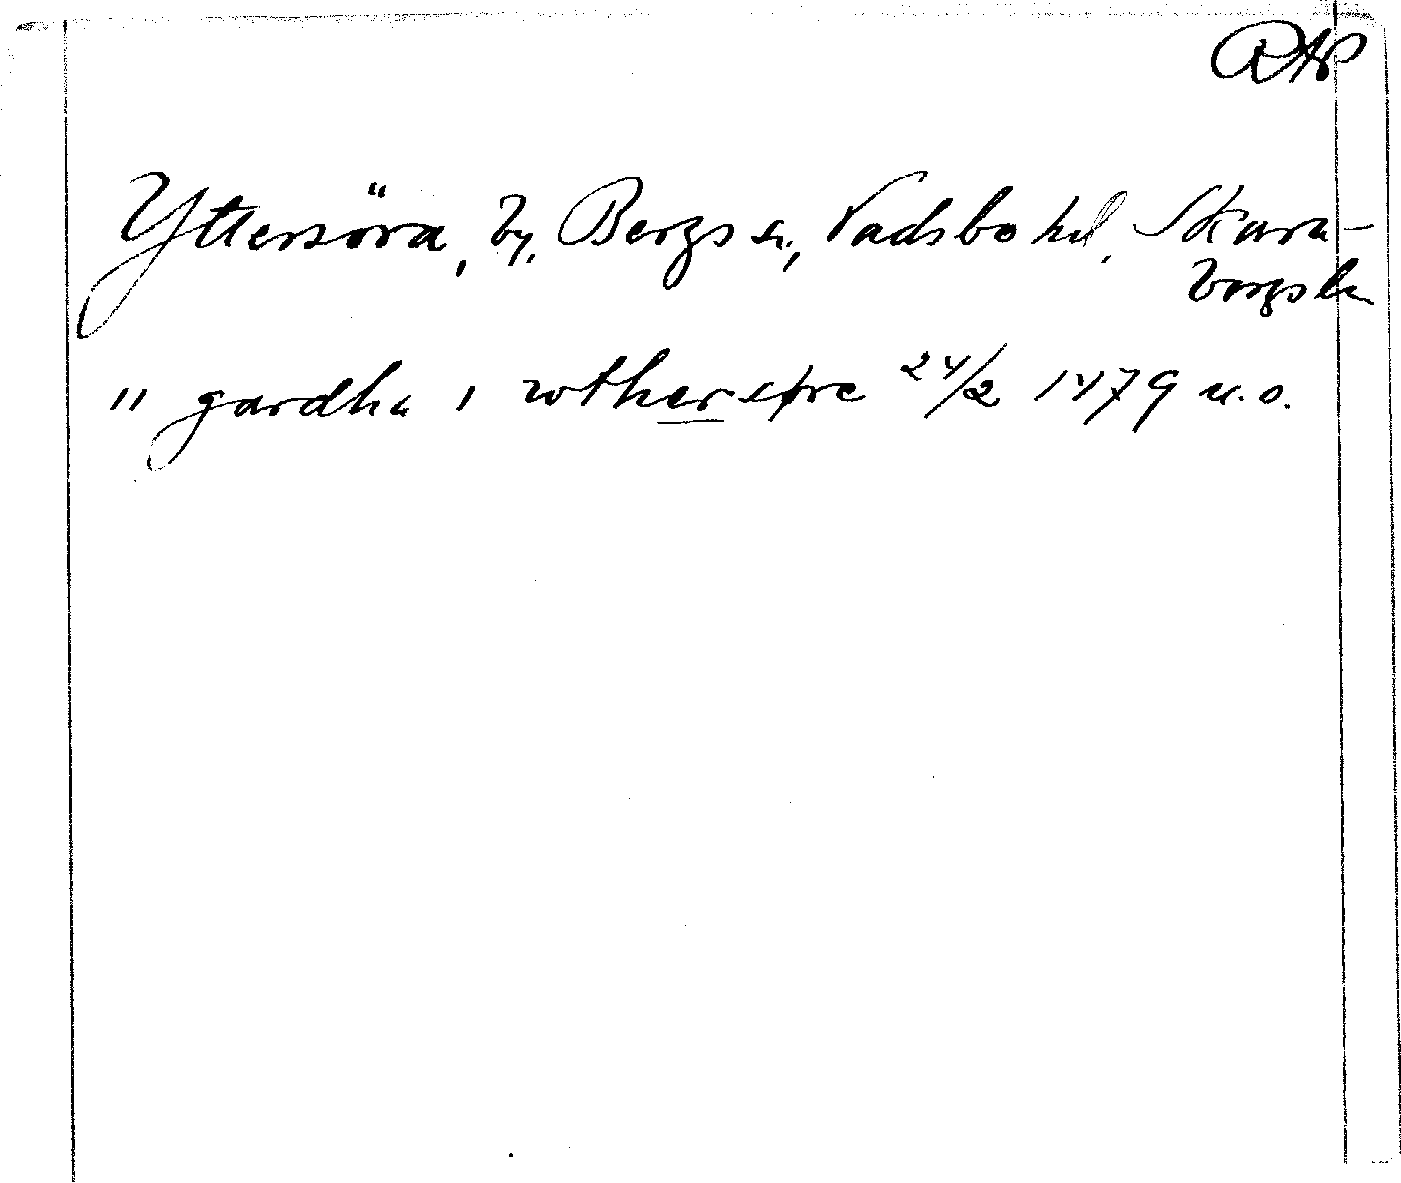 RAP
Yttersöra, by, Bergs sn, Vadsbo hd, Skara-
borgs ln
11 gardha i wthersøre 24/2 1479 u.o.